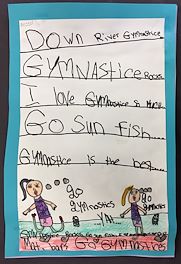 Down River Gymnastics
Gymnastice Rocks
I love Gymnastice so Much
Go Sun Fish....
Gymnastice is the best....
go
gymnastics
go
gymnastics
Yay...
Go Gymnastics